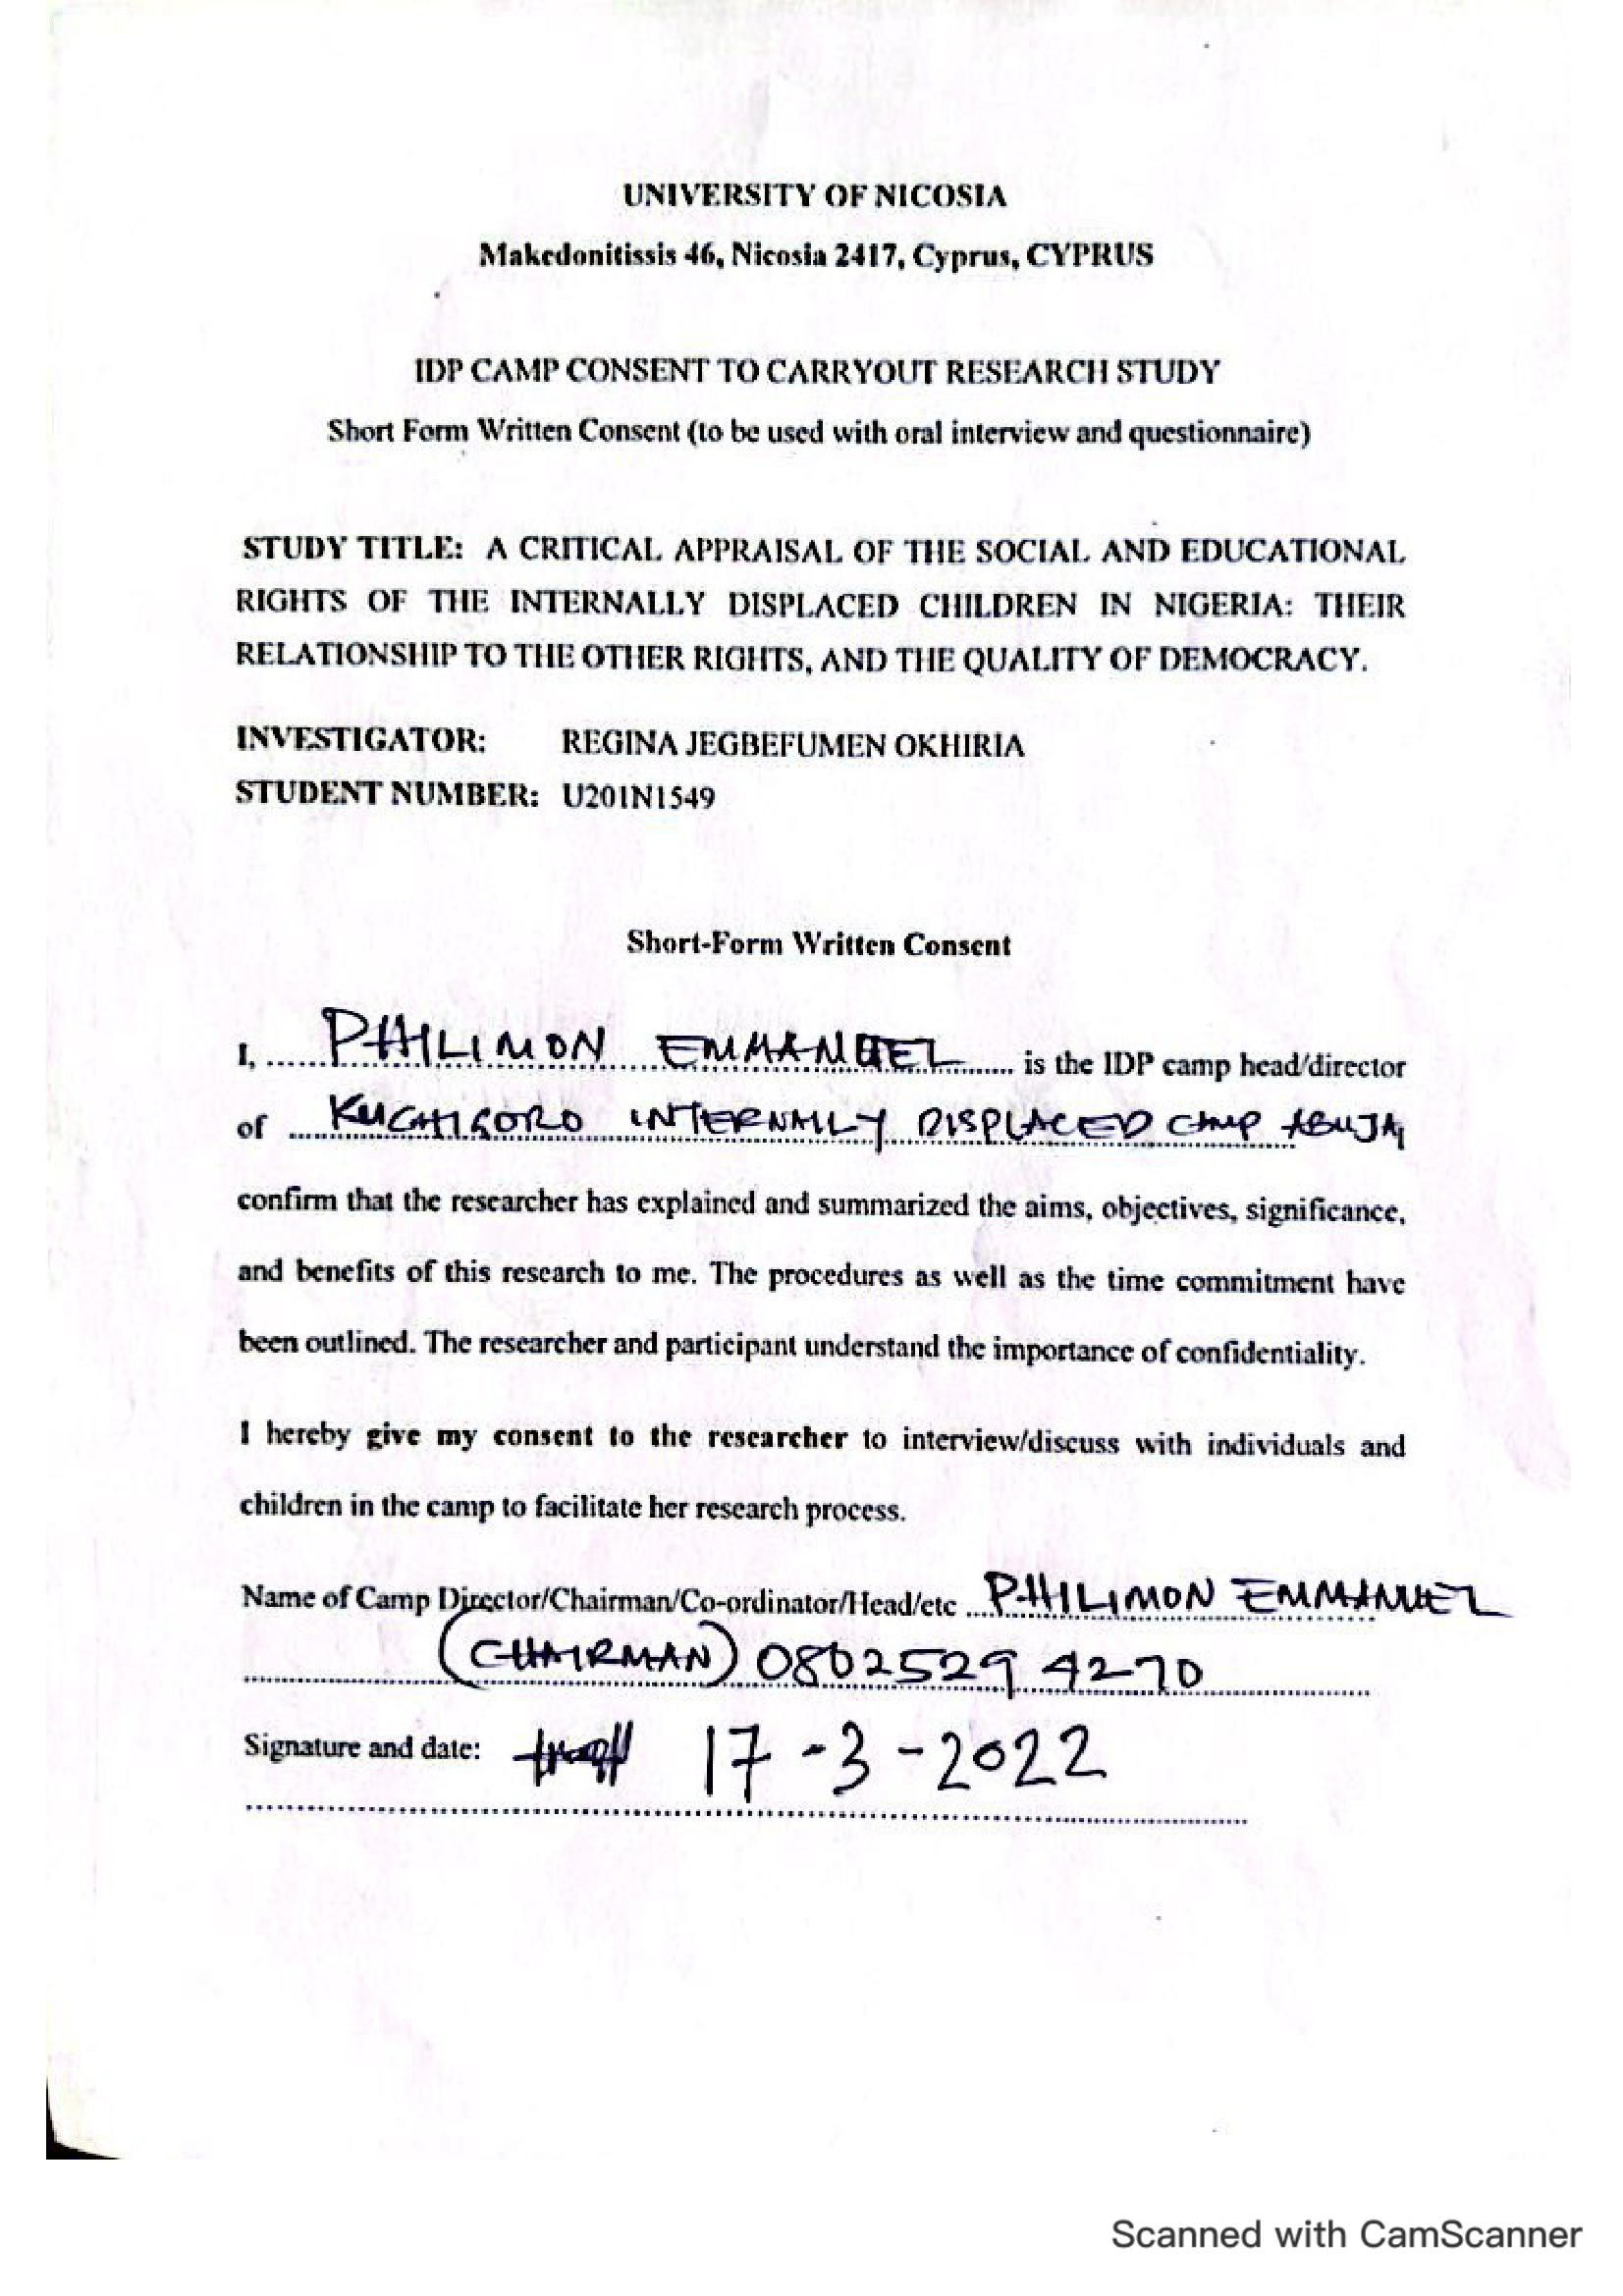 UNIVERSITY OF NICOSIA
Makedonitissis 46, Nicosia 2417, Cyprus, CYPRUS
IDP CAMP CONSENT TO CARRYOUT RESEARCH STUDY
Short Form Written Consent (to be used with oral interview and questionnaire)
STUDY TITLE: A CRITICAL APPRAISAL OF THE SOCIAL AND EDUCATIONAL
RIGHTS OF THE INTERNALLY DISPLACED CHILDREN IN NIGERIA: THEIR
RELATIONSHIP TO THE OTHER RIGHTS, AND THE QUALITY OF DEMOCRACY.
INVESTIGATOR: REGINA JEGBEFUMEN OKHIRIA
STUDENT NUMBER: U201N1549
Short-Form Written Consent
I, PHILIMON EMMANUEL is the IDP camp head/director
of KUCHIGORO INTERNALLY DISPLACED CAMP ABUJA
confirm that the researcher has explained and summarized the aims, objectives, significance,
and benefits of this research to me. The procedures as well as the time commitment have
been outlined. The researcher and participant understand the importance of confidentiality.
I hereby give my consent to the researcher to interview/discuss with individuals and
children in the camp to facilitate her research process.
Name of Camp Director/Chairman/Co-ordinator/Head/etc PHILIMON EMMANUEL
(CHAIRMAN) 08025294270
Signature and date: 17-3-2022
Scanned with CamScanner